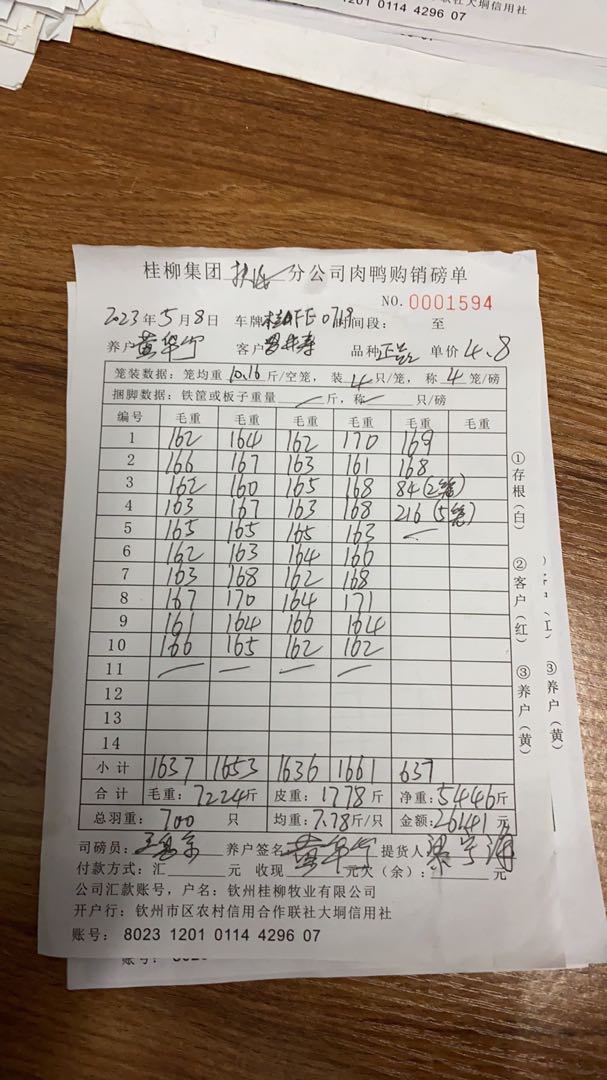 联社大垌信用社
1201 0114 4296 07
桂柳集团 分公司肉鸭购销磅单
NO. 0001594
2023年5月8日 车牌 0719 时间段: 至
养户 黄华宁 客户 品种 单价4.8
笼装数据: 笼均重10.16斤/空笼, 装4只/笼, 称4笼/磅
捆脚数据: 铁筐或板子重量 斤, 称 只/磅
编号 毛重 毛重 毛重 毛重 毛重 毛重
1 162 164 162 170 169
2 166 167 163 161 168
3 162 160 165 168 84(2笼)
4 163 167 163 168 216(5笼)
5 165 165 165 163
6 162 163 164 166
7 163 168 162 168
8 167 170 164 171
9 161 164 166 164
10 166 165 162 162
11
12
13
14
小计 1637 1653 1636 1661 637
合计 毛重: 7224斤 皮重: 1778斤 净重: 5446斤
总羽重: 700 只 均重: 7.78斤/只 金额: 26141元
司磅员: 养户签名 黄华宁 提货人
付款方式: 汇 元 收现 元欠(余): 元
公司汇款账号, 户名: 钦州桂柳牧业有限公司
开户行: 钦州市区农村信用合作联社大垌信用社
账号: 8023 1201 0114 4296 07
①存根(白)
②客户(红)
③养户(黄)
③养户(黄)
账号: